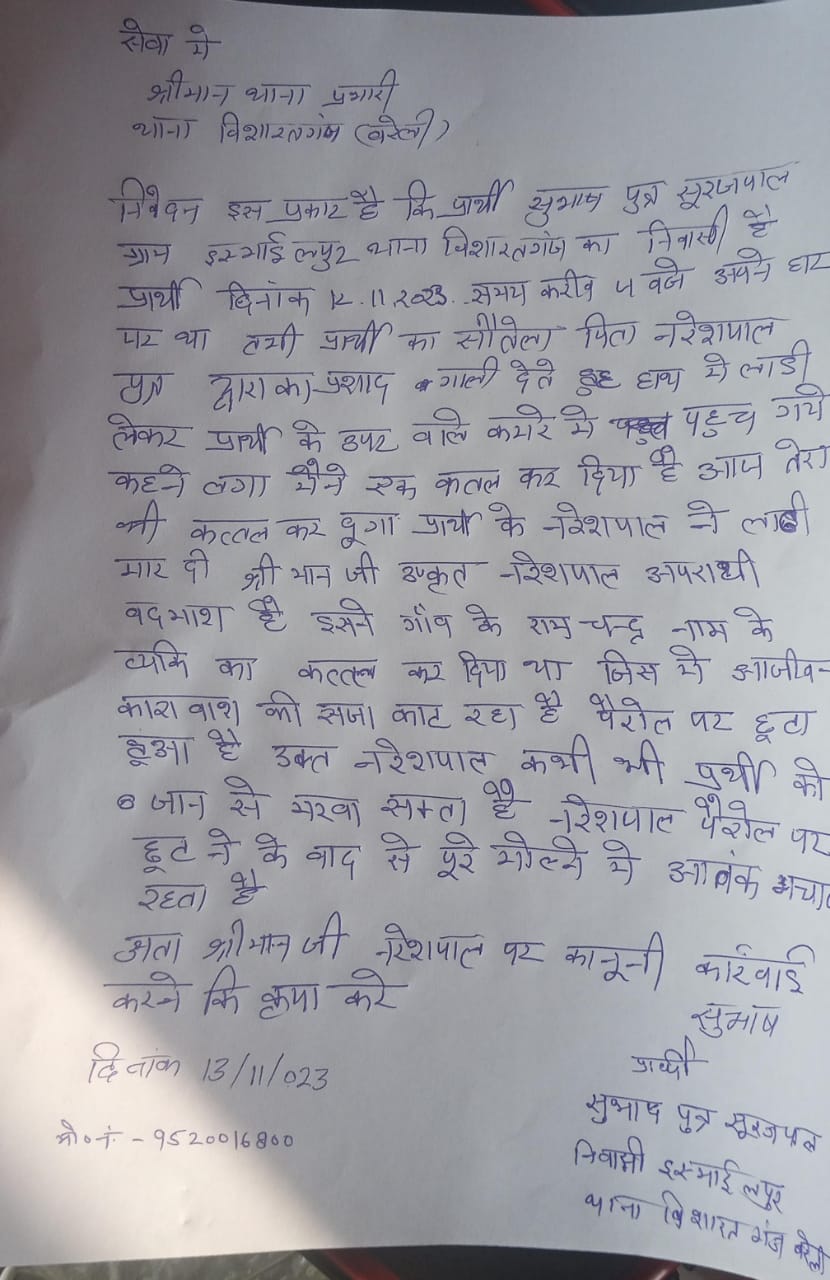 सेवा मे
श्रीमान थाना प्रभारी
थाना विशारतगंज (बरेली)
निवेदन इस प्रकार है कि प्रार्थी सुभाष पुत्र सूरजपाल
ग्राम इस्माईलपुर थाना विशारतगंज का निवासी है
प्रार्थी दिनांक 12.11.2023. समय करीव 4 वजे अपने घर
पर था तभी प्रार्थी का सौतेला पिता नरेशपाल
पुत्र द्वारा का प्रशाद गाली देते हुए हाथ मे लाठी
लेकर प्रार्थी के उपर वाले कमरे मे पहुच गये
कहने लगा मैने एक कतल कर दिया है आज तेरा
भी कत्तल कर दूगा प्रार्थी के नरेशपाल ने लाठी
मार दी श्री मान जी उपकृत नरेशपाल अपराधी
वदमाश है इसने गाँव के राम चन्द्र नाम के
व्यकि का कत्तल कर दिया था जिस मे आजीव-
कारा वाश की सजा काट रहा है पैरोल पर छूटा
हूआ है उक्त नरेशपाल कभी भी प्रर्थी को
जान से मरवा सक्ता है नरेशपाल पैरोल पर
छूट ने के वाद से पूरे मोल्ले मे आतंक मचाता
रहता है
अता श्रीमान जी नरेशपाल पर कानूनी कार्रवाई
करने कि कृपा करे
सुभाष
दिनांक 13/11/023
प्रार्थी
सुभाष पुत्र सूरजपाल
मो०नं० - 9520016800
निवासी इस्माईलपुर
थाना विशारत गंज बरेली